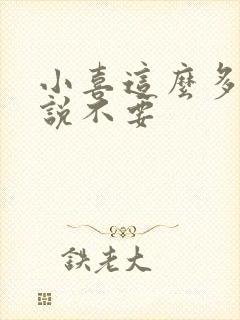 小喜這麼多
說不要
鉄老大